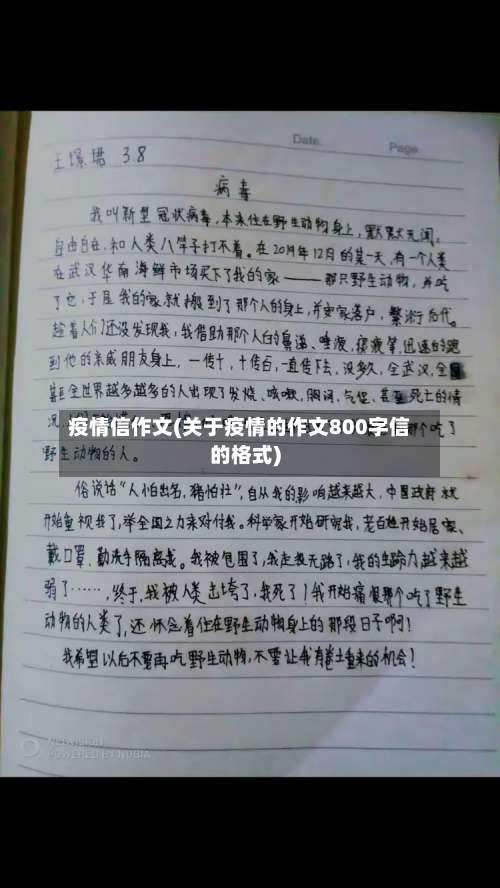 Date.
Page.
王 3.8
病毒
我叫新型冠状病毒，本来住在野生动物身上，默默无闻，
自由自在，和人类八竿子打不着。在2019年12月的某一天，有一个人类
在武汉华南海鲜市场买下了我的家——那只野生动物，并吃
了它，于是我的家就搬到了那个人的身上，并安家落户，繁衍后代。
趁着人们还没发现我，我借助那个人的鼻涕、唾液、迅速的跑
到他的亲戚朋友身上，一传十，十传百，一直传下去，没多久，全武汉，全国
甚至全世界越来越多的人出现了发烧、咳嗽，胸闷，气促，甚至死亡的情
况
那个吃了
野生动物的人。
疫情信作文(关于疫情的作文800字信
的格式)
俗说话“人怕出名，猪怕壮”，自从我的影响越来越大，中国政府就
开始重视我了，举全国之力来对付我。科学家开始研究我，老百姓开始居家、
戴口罩、勤洗手隔离我。我被包围了，我走投无路了，我的生命力越来越
弱了……，终于，我被人类击垮了，我死了！我开始痛恨那个吃了野生
动物的人类了，还怀念着住在野生动物身上的那段日子啊！
我希望以后不要再吃野生动物，不要让我有卷土重来的机会！
POWERED BY NUBIA